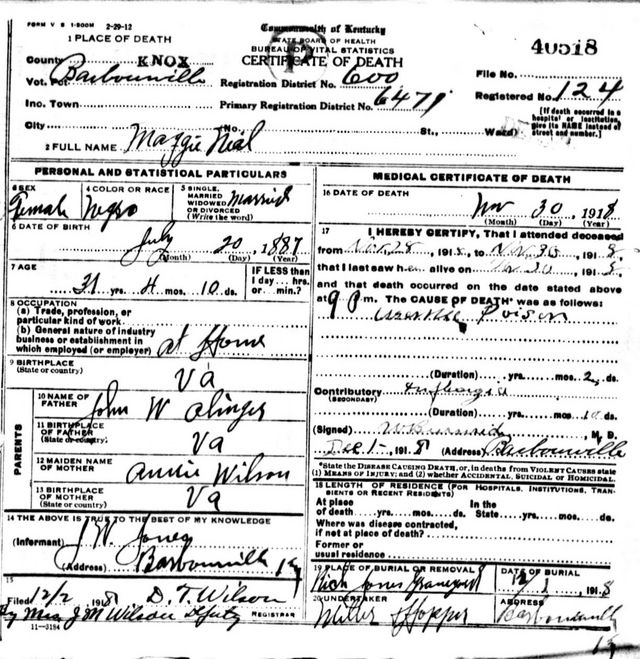 FORM V S 1-500M 2-29-12
1 PLACE OF DEATH
Commonwealth of Kentucky
STATE BOARD OF HEALTH
BUREAU OF VITAL STATISTICS
CERTIFICATE OF DEATH
40518
County KNOX
Vot. Pct. Barbourville
Registration District No. 600
File No.
Inc. Town
Primary Registration District No. 6471
Registered No. 124
City (No. St., Ward)
(If death occurred in a hospital or institution, give its NAME instead of street and number.)
2 FULL NAME Maggie Neal
PERSONAL AND STATISTICAL PARTICULARS
6 SEX Female
4 COLOR OR RACE Negro
5 SINGLE, MARRIED WIDOWED OR DIVORCED (Write the word) Married
6 DATE OF BIRTH July 20, 1887
(Month) (Day) (Year)
7 AGE 31 yrs. 4 mos. 10 ds.
IF LESS than 1 day... hrs. or min.?
8 OCCUPATION
(a) Trade, profession, or particular kind of work
(b) General nature of industry business or establishment in which employed (or employer) at Home
9 BIRTHPLACE (State or country) Va
PARENTS
10 NAME OF FATHER John W
11 BIRTHPLACE OF FATHER (State or country) Va
12 MAIDEN NAME OF MOTHER Annie Wilson
13 BIRTHPLACE OF MOTHER (State or country) Va
14 THE ABOVE IS TRUE TO THE BEST OF MY KNOWLEDGE
(Informant) J. W. Jones
Barbourville Ky
15
Filed 12/2, 1918 D. T. Wilson
By Mrs J M Wilson Deputy REGISTRAR
11-3184
MEDICAL CERTIFICATE OF DEATH
16 DATE OF DEATH
Nov 30, 1918
(Month) (Day) (Year)
17 I HEREBY CERTIFY, That I attended deceased
from Nov. 28 1918, to Nov. 30 1918
that I last saw her alive on 30 1918
and that death occurred on the date stated above
at 9 P m. The CAUSE OF DEATH* was as follows:
Poison
(Duration) yrs. mos. 2 ds.
Contributory (SECONDARY) Influenza
(Duration) yrs. mos. 10 ds.
(Signed) M. D.
Dec 1-, 1918 (Address) Barbourville
*State the DISEASE CAUSING DEATH, or, in deaths from VIOLENT CAUSES state (1) MEANS OF INJURY; and (2) whether ACCIDENTAL, SUICIDAL or HOMICIDAL.
18 LENGTH OF RESIDENCE (FOR HOSPITALS, INSTITUTIONS, TRANSIENTS OR RECENT RESIDENTS)
At place of death yrs. mos. ds. In the State yrs. mos. ds.
Where was disease contracted, if not at place of death?
Former or usual residence
19 PLACE OF BURIAL OR REMOVAL Jones Graveyard
DATE OF BURIAL 1918
20 UNDERTAKER Miller Hopper
ADDRESS Barbourville
Ky